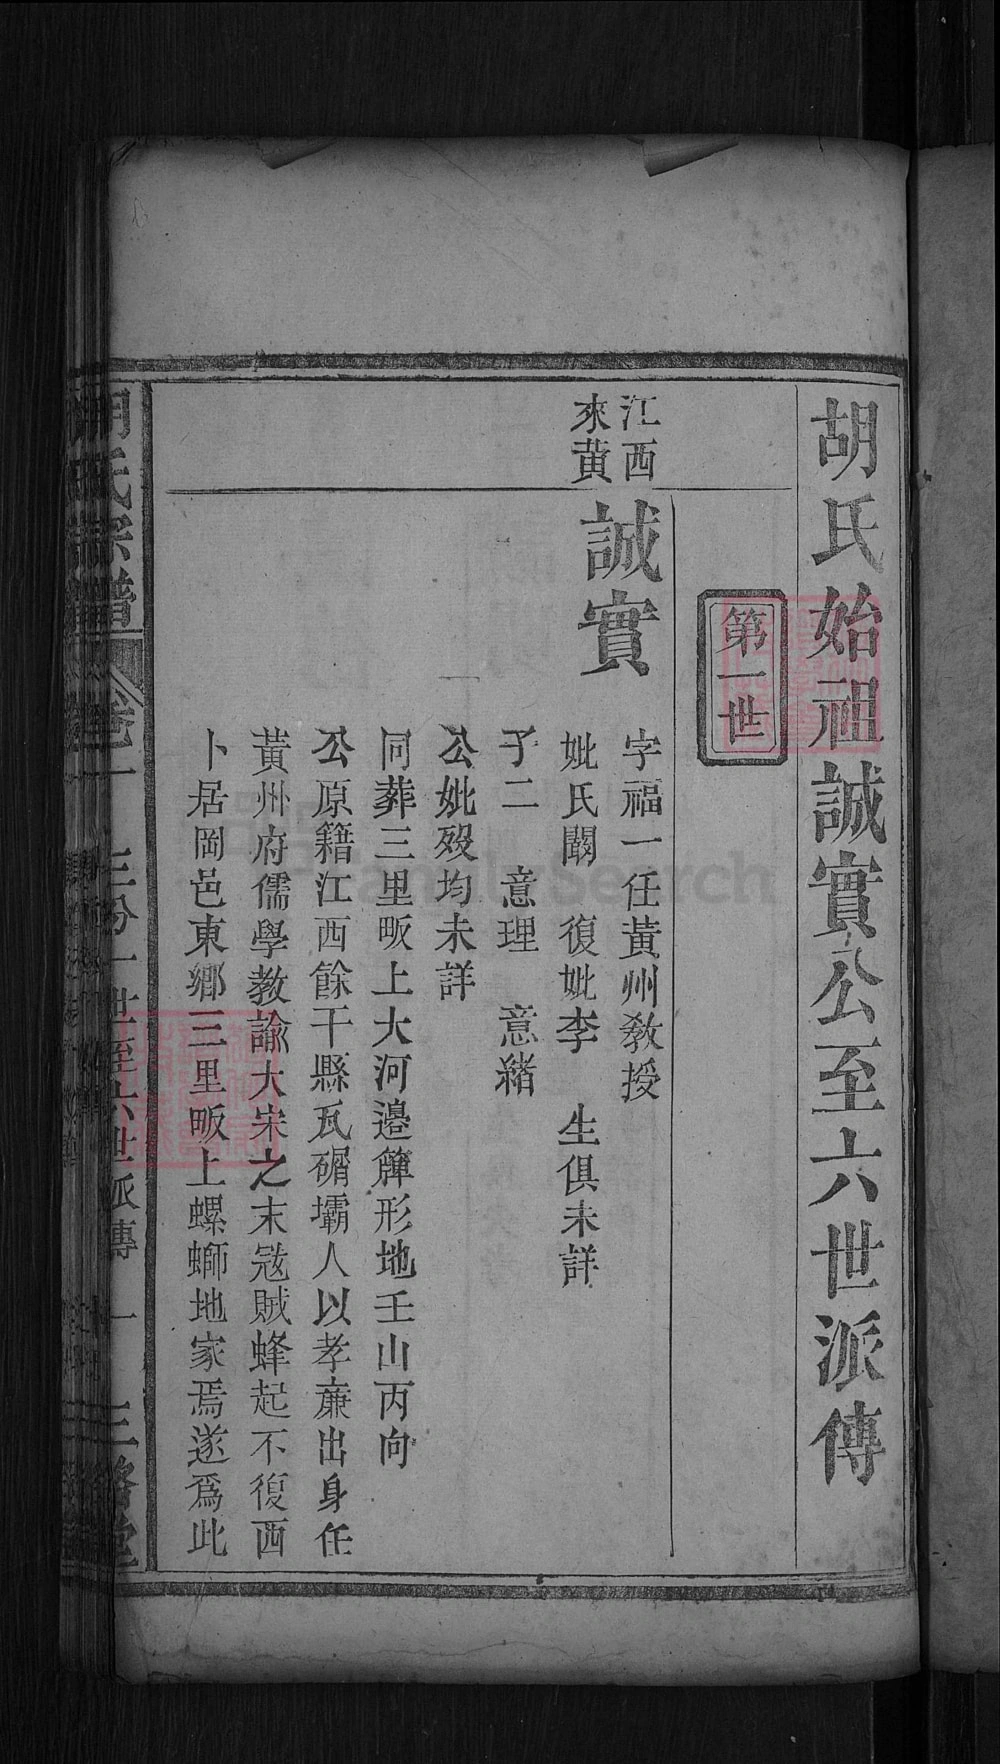 胡氏始祖誠實公至六世派傳
第一世
江西
來黃
誠實
字福一任黃州教授
妣氏闕 復妣李 生俱未詳
子二 意理 意緒
公妣歿均未詳
同葬三里畈上大河邊簰形地壬山丙向
公原籍江西餘干縣瓦碈壩人以孝廉出身任
黃州府儒學教諭大宋之末寇賊蜂起不復西
卜居岡邑東鄉三里畈上螺螄地家焉遂爲此
胡氏宗譜
卷一
一世至六世派傳
一
FamilySearch